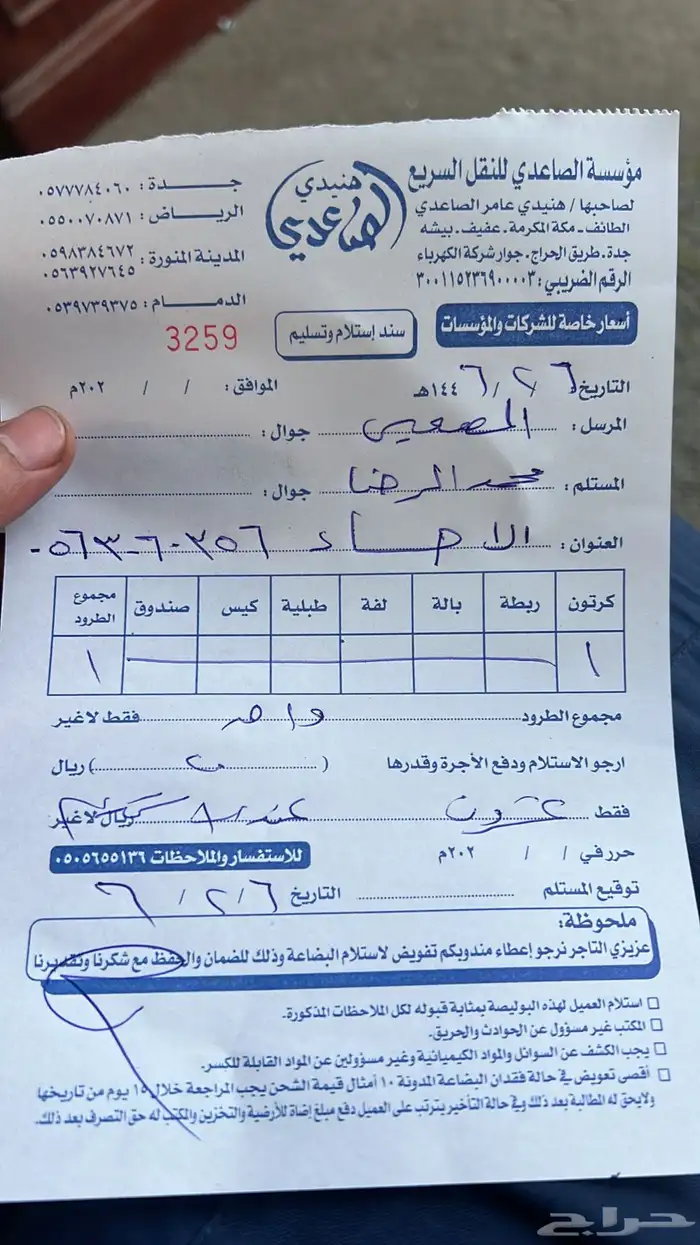 مؤسسة الصاعدي للنقل السريع
لصاحبها / هنيدي عامر الصاعدي
الطائف - مكة المكرمة. عفيف. بيشه
جدة. طريق الحراج. جوار شركة الكهرباء
الرقم الضريبي: ٣٠٠١١٥٢٣٦٩٠٠٠٠٣
هنيدي
الصاعدي
جدة: ٠٥٧٧٧٨٤٠٦٠
الرياض: ٠٥٥٠٠٧٠٨٧١
المدينة المنورة: ٠٥٩٨٣٨٤٦٧٢
٠٥٦٣٩٢٧٦٤٥
الدمام: ٠٥٣٩٧٣٩٣٧٥
أسعار خاصة للشركات والمؤسسات
سند إستلام وتسليم
3259
التاريخ ٢٦ / ٦ / ١٤٤٦هـ الموافق: / / ٢٠٢م
المرسل: جوال:
المستلم: محمد الرضا جوال:
العنوان: الاحساء ٠٥٦٣٦٠٦٣٥٦
كرتون ربطة بالة لفة طبلية كيس صندوق مجموع الطرود
١ ١
مجموع الطرود واحد فقط لاغير
ارجو الاستلام ودفع الأجرة وقدرها ( ) ريال
فقط عشرون ريال لاغير
حرر في / / ٢٠٢م
للاستفسار والملاحظات ٠٥٠٥٦٥٥١٣٦
توقيع المستلم التاريخ ٢٦ / ٦
ملحوظة:
عزيزي التاجر نرجو إعطاء مندوبكم تفويض لاستلام البضاعة وذلك للضمان والحفظ مع شكرنا وتقديرنا
استلام العميل لهذه البوليصة بمثابة قبوله لكل الملاحظات المذكورة.
المكتب غير مسؤول عن الحوادث والحريق.
يجب الكشف عن السوائل والمواد الكيميائية وغير مسؤولين عن المواد القابلة للكسر.
أقصى تعويض في حالة فقدان البضاعة المدونة ١٠ أمثال قيمة الشحن يجب المراجعة خلال ١٥ يوم من تاريخها
ولايحق له المطالبة بعد ذلك وفي حالة التأخير يترتب على العميل دفع مبلغ إضافة للأرضية والتخزين والمكتب له حق التصرف بعد ذلك.
حراج